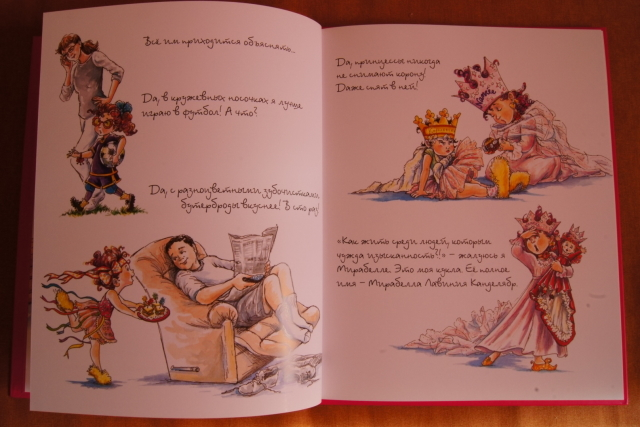 Все им приходится объяснять...
Да, в кружевных носочках я лучше
играю в футбол! А что?
Да, с разноцветными зубочистками
бутерброды вкуснее! В сто раз!
Да, принцессы никогда
не снимают корону!
Даже спят в ней!
«Как жить среди людей, которым
чужда изысканность?!» – жалуюсь я
Мирабелле. Это моя кукла. Ее полное
имя – Мирабелла Лавиния Канделябр.